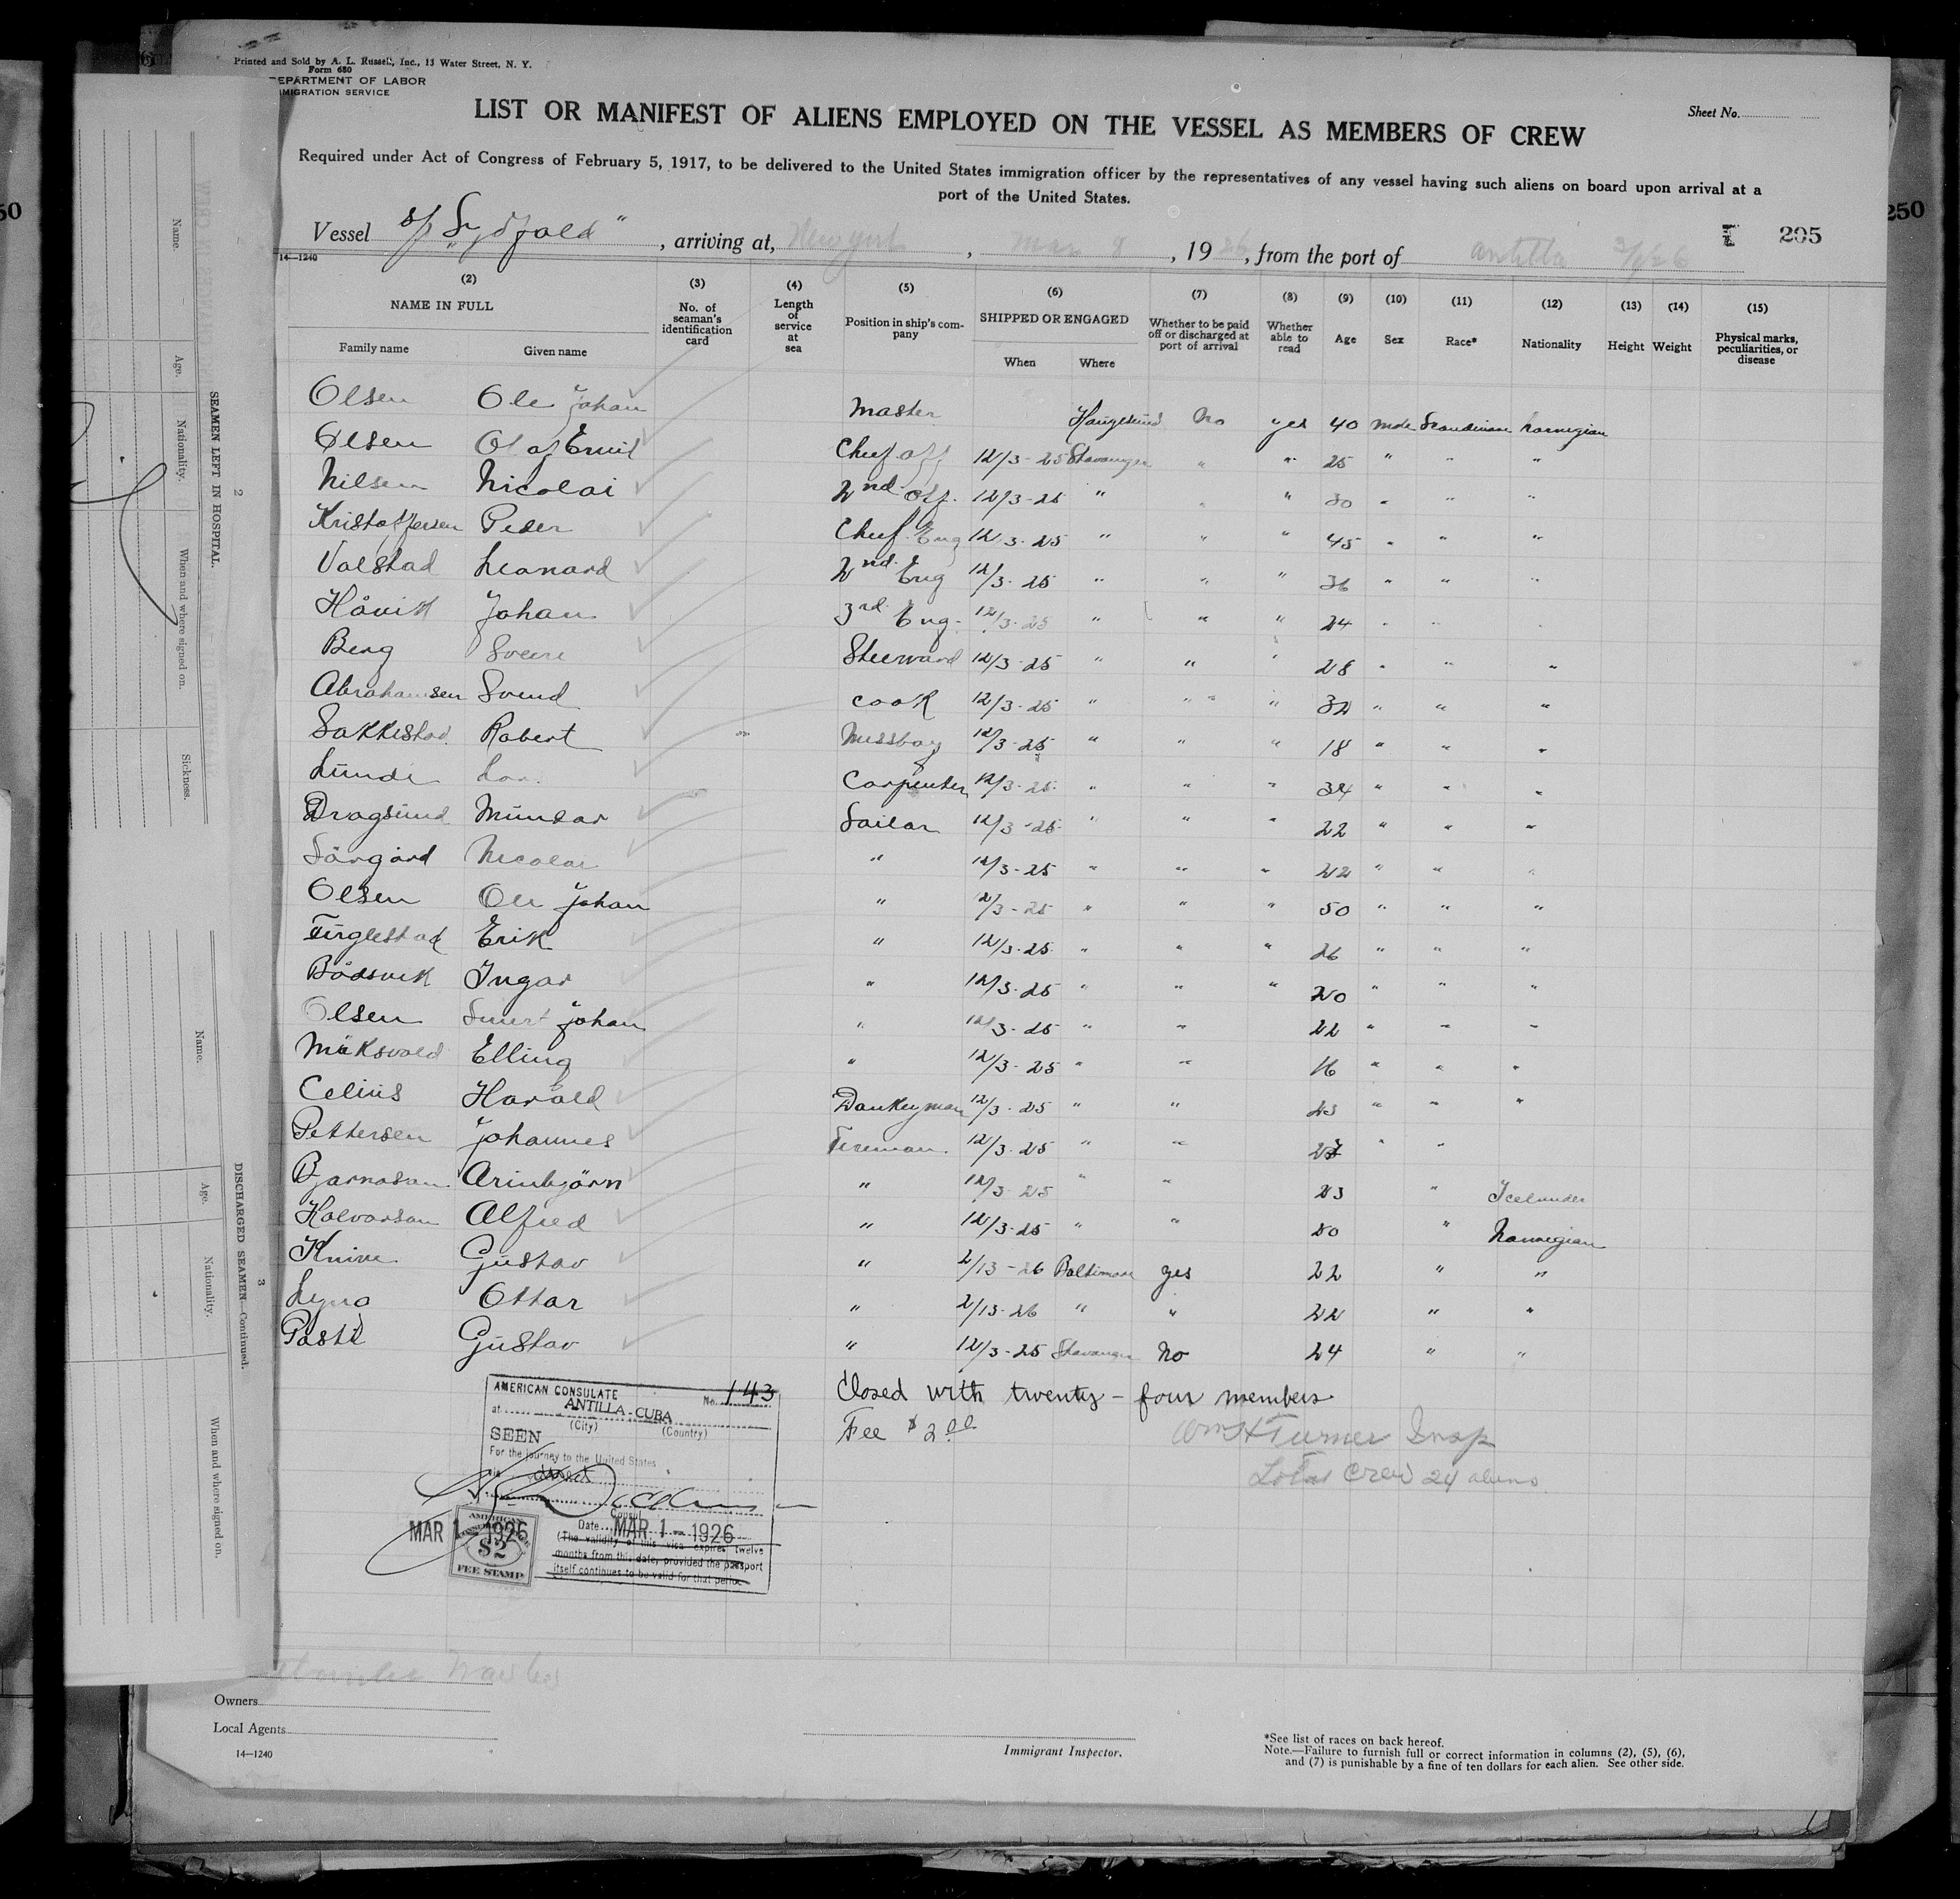 Printed and Sold by A. L. Russell, Inc., 13 Water Street, N. Y.
Form 680
DEPARTMENT OF LABOR
IMMIGRATION SERVICE
Sheet No.
LIST OR MANIFEST OF ALIENS EMPLOYED ON THE VESSEL AS MEMBERS OF CREW
Required under Act of Congress of February 5, 1917, to be delivered to the United States immigration officer by the representatives of any vessel having such aliens on board upon arrival at a
port of the United States.
Vessel S/S "Sydfold", arriving at, New York, Mar 8, 1926, from the port of Antilla 3/1/26
205
14—1240
(2) (3) (4) (5) (6) (7) (8) (9) (10) (11) (12) (13) (14) (15)
NAME IN FULL
Family name Given name
No. of seaman's identification card
Length of service at sea
Position in ship's company
SHIPPED OR ENGAGED
When Where
Whether to be paid off or discharged at port of arrival
Whether able to read
Age Sex Race* Nationality Height Weight
Physical marks, peculiarities, or disease
Olsen Ole Johan Master Haugesund No yes 40 male Scandinavian Norwegian
Olsen Olaf Emil Chief off 12/3-25 Stavanger " " 25 " " "
Nilsen Nicolai 2nd Off. 12/3-25 " " " 30 " " "
Kristoffersen Peder Chief Eng 12/3-25 " " " 45 " " "
Valstad Leonard 2nd Eng 12/3-25 " " " 36 " " "
Håvik Johan 3rd Eng. 12/3-25 " " " 24 " " "
Berg Sverre Steerward 12/3-25 " " " 28 " " "
Abrahamsen Svend cook 12/3-25 " " " 32 " " "
Sakkestad Robert Messboy 12/3-25 " " " 18 " " "
Lunde Carpenter 12/3-25 " " " 34 " " "
Dragsund Sailor 12/3-25 " " " 22 " " "
Sørgård Nicolai " 12/3-25 " " " 22 " " "
Olsen Ole Johan " 12/3-25 " " " 50 " " "
Erik " 12/3-25 " " " 26 " " "
Bådsvik Ingar " 12/3-25 " " " 20 " " "
Olsen Johan " 12/3-25 " " 22 " " "
Elling " 12/3-25 " " 16 " " "
Celius Harald Donkeyman 12/3-25 " " 23 " " "
Pettersen Johannes Fireman 12/3-25 " " 27 " "
Bjarnason Arinbjörn " 12/3-25 " " 23 " Icelander
Halvorsen Alfred " 12/3-25 " " 20 " Norwegian
Gustav " 2/13-26 Baltimore yes 22 " "
Ottar " 2/13-26 " " 22 " "
Gustav " 12/3-25 Stavanger No 24 " "
Closed with twenty-four members
Fee $2.00
Wm H Turner Insp
Total Crew 24 aliens
AMERICAN CONSULATE No. 143
at ANTILLA, CUBA
(City) (Country)
SEEN
For the journey to the United States
via direct
Consul
Date MAR 1 - 1926
(The validity of this visa expires twelve
months from this date, provided the passport
itself continues to be valid for that period
MAR 1 - 1926
AMERICAN
$2
FEE STAMP
Owners
Local Agents
14—1240
Immigrant Inspector.
*See list of races on back hereof.
Note.—Failure to furnish full or correct information in columns (2), (5), (6),
and (7) is punishable by a fine of ten dollars for each alien. See other side.
2
SEAMEN LEFT IN HOSPITAL.
Name. Age. Nationality. When and where signed on. Sickness.
3
DISCHARGED SEAMEN—Continued.
Name. Age. Nationality. When and where signed on.
50
250